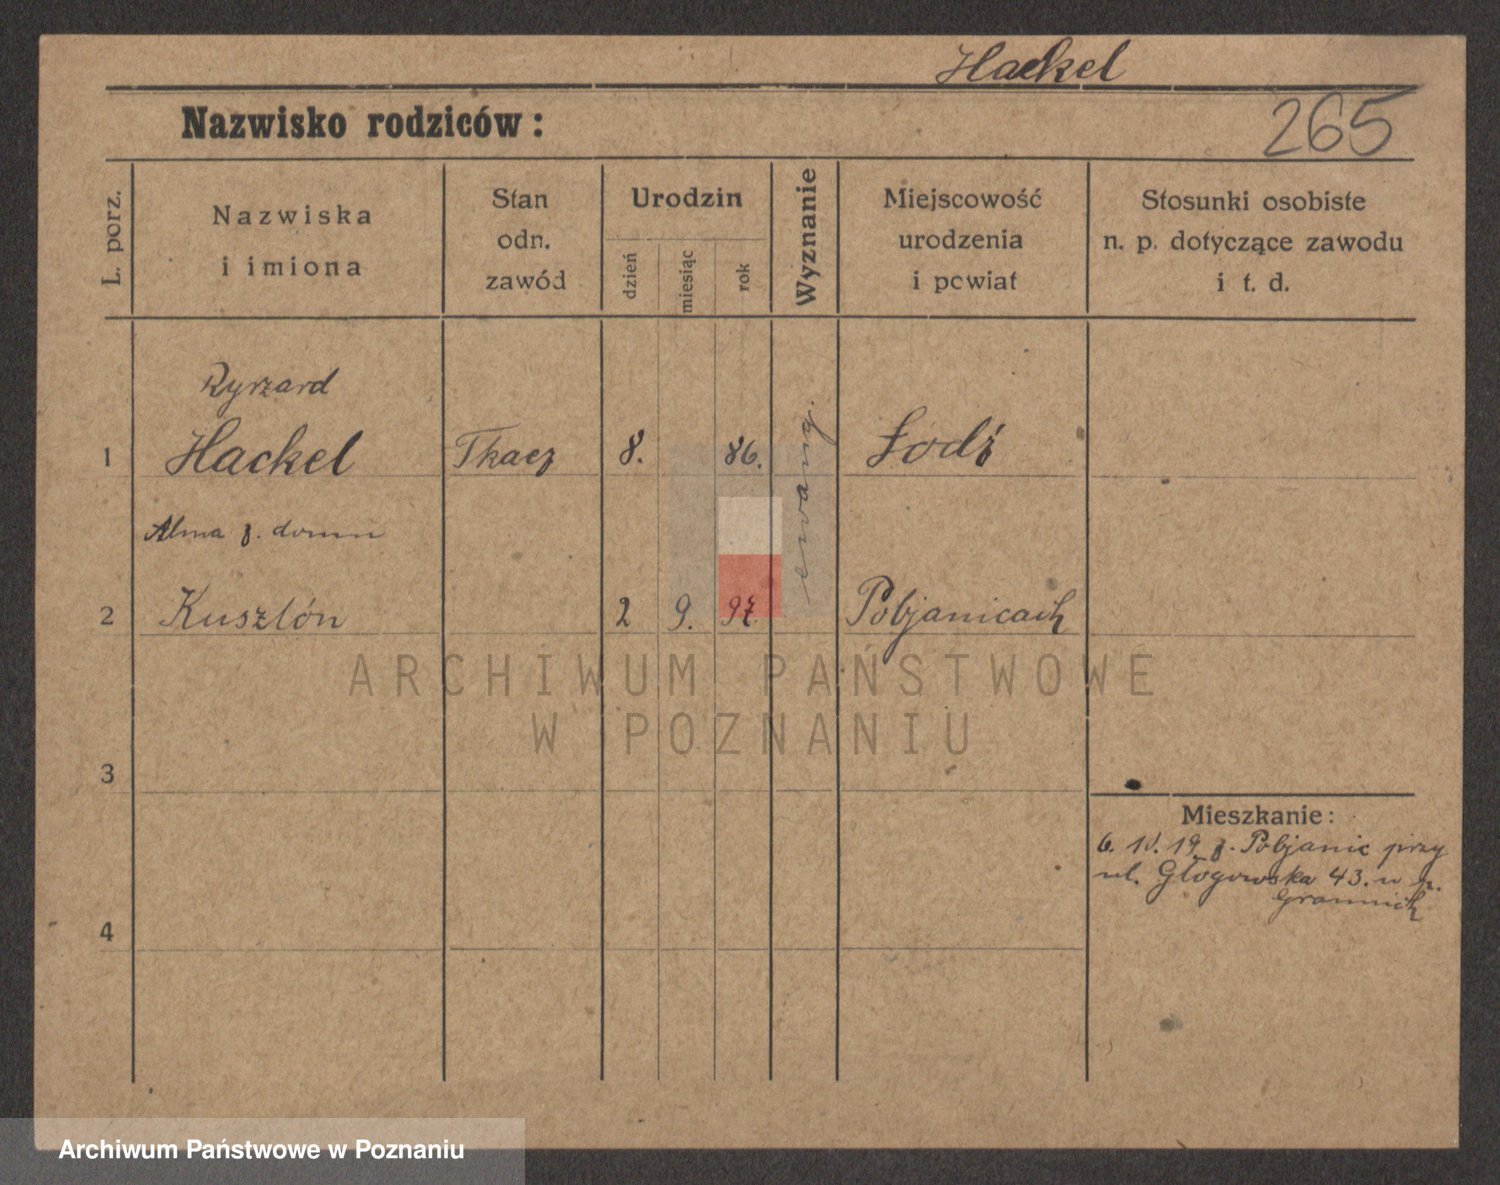 Hackel
Nazwisko rodziców:
265
L. porz.
Nazwiska
i imiona
Stan
odn.
zawód
Urodzin
dzień
miesiąc
rok
Wyznanie
Miejscowość
urodzenia
i powiat
Stosunki osobiste
n. p. dotyczące zawodu
i t. d.
Ryrzard
1 Hackel Tkacz 8. 86. ewang. Łodź
Alma z. domu
2 Kuszlón 2 9. 97. Pobjanicach
ARCHIWUM PAŃSTWOWE
W POZNANIU
3
Mieszkanie:
6. 10. 19 z. Pobjanic przy
ul. Głogowska 43. u p.
4
Archiwum Państwowe w Poznaniu